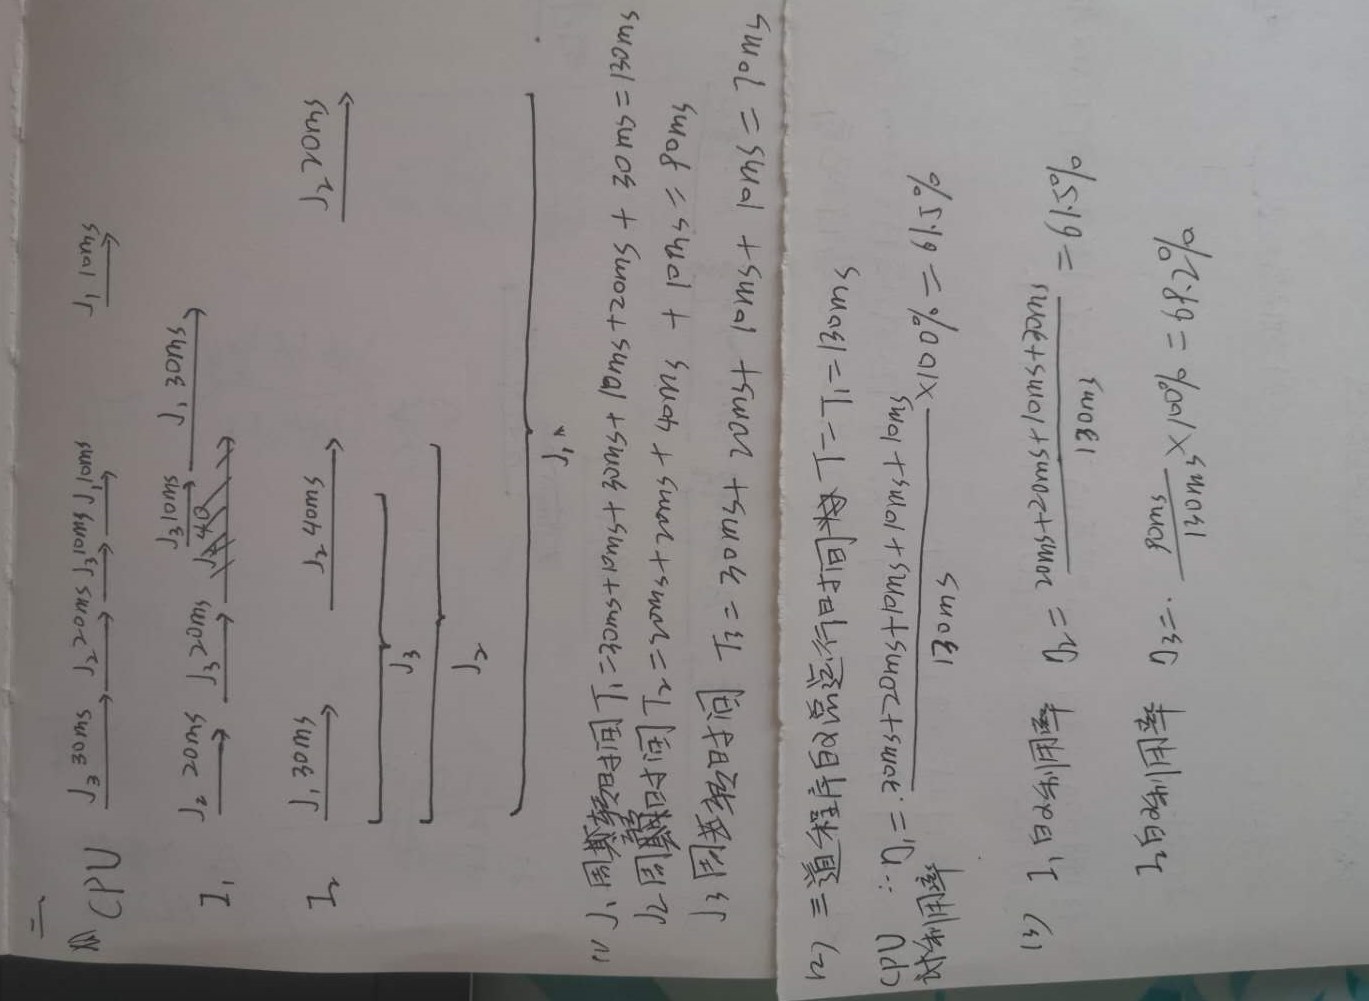 二、
CPU J3 30ms J2 20ms J3 10ms J1 10ms J1 10ms
I1 J2 20ms J3 20ms J3 10ms J1 30ms
I2 J1 30ms J2 40ms J2 20ms
J3
J2
J1
(1) J1 周转时间 T1 = 30ms+10ms+30ms+10ms+20ms+30ms = 130ms
J2 周转时间 T2 = 30ms+20ms+40ms+10ms = 90ms
J3 周转时间 T3 = 30ms+20ms+10ms+10ms = 70ms
(2) 三道程序的总运行时间 T = T1 = 130ms
CPU 利用率 ∴ η1 = 30ms+20ms+10ms+10ms+10ms / 130ms ×100% = 61.5%
(3) I1 的利用率 η2 = 20ms+20ms+10ms+30ms / 130ms = 61.5%
I2的利用率 η3 = 90ms / 130ms ×100% = 69.2%